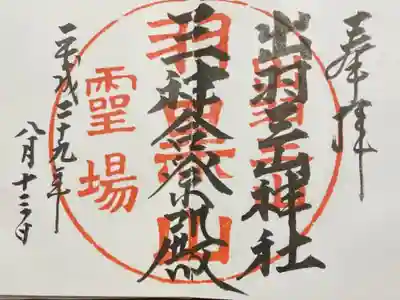 奉拝
出羽三山神社
三神合祭殿
羽黒山
靈場
平成二十九年
八月十三日